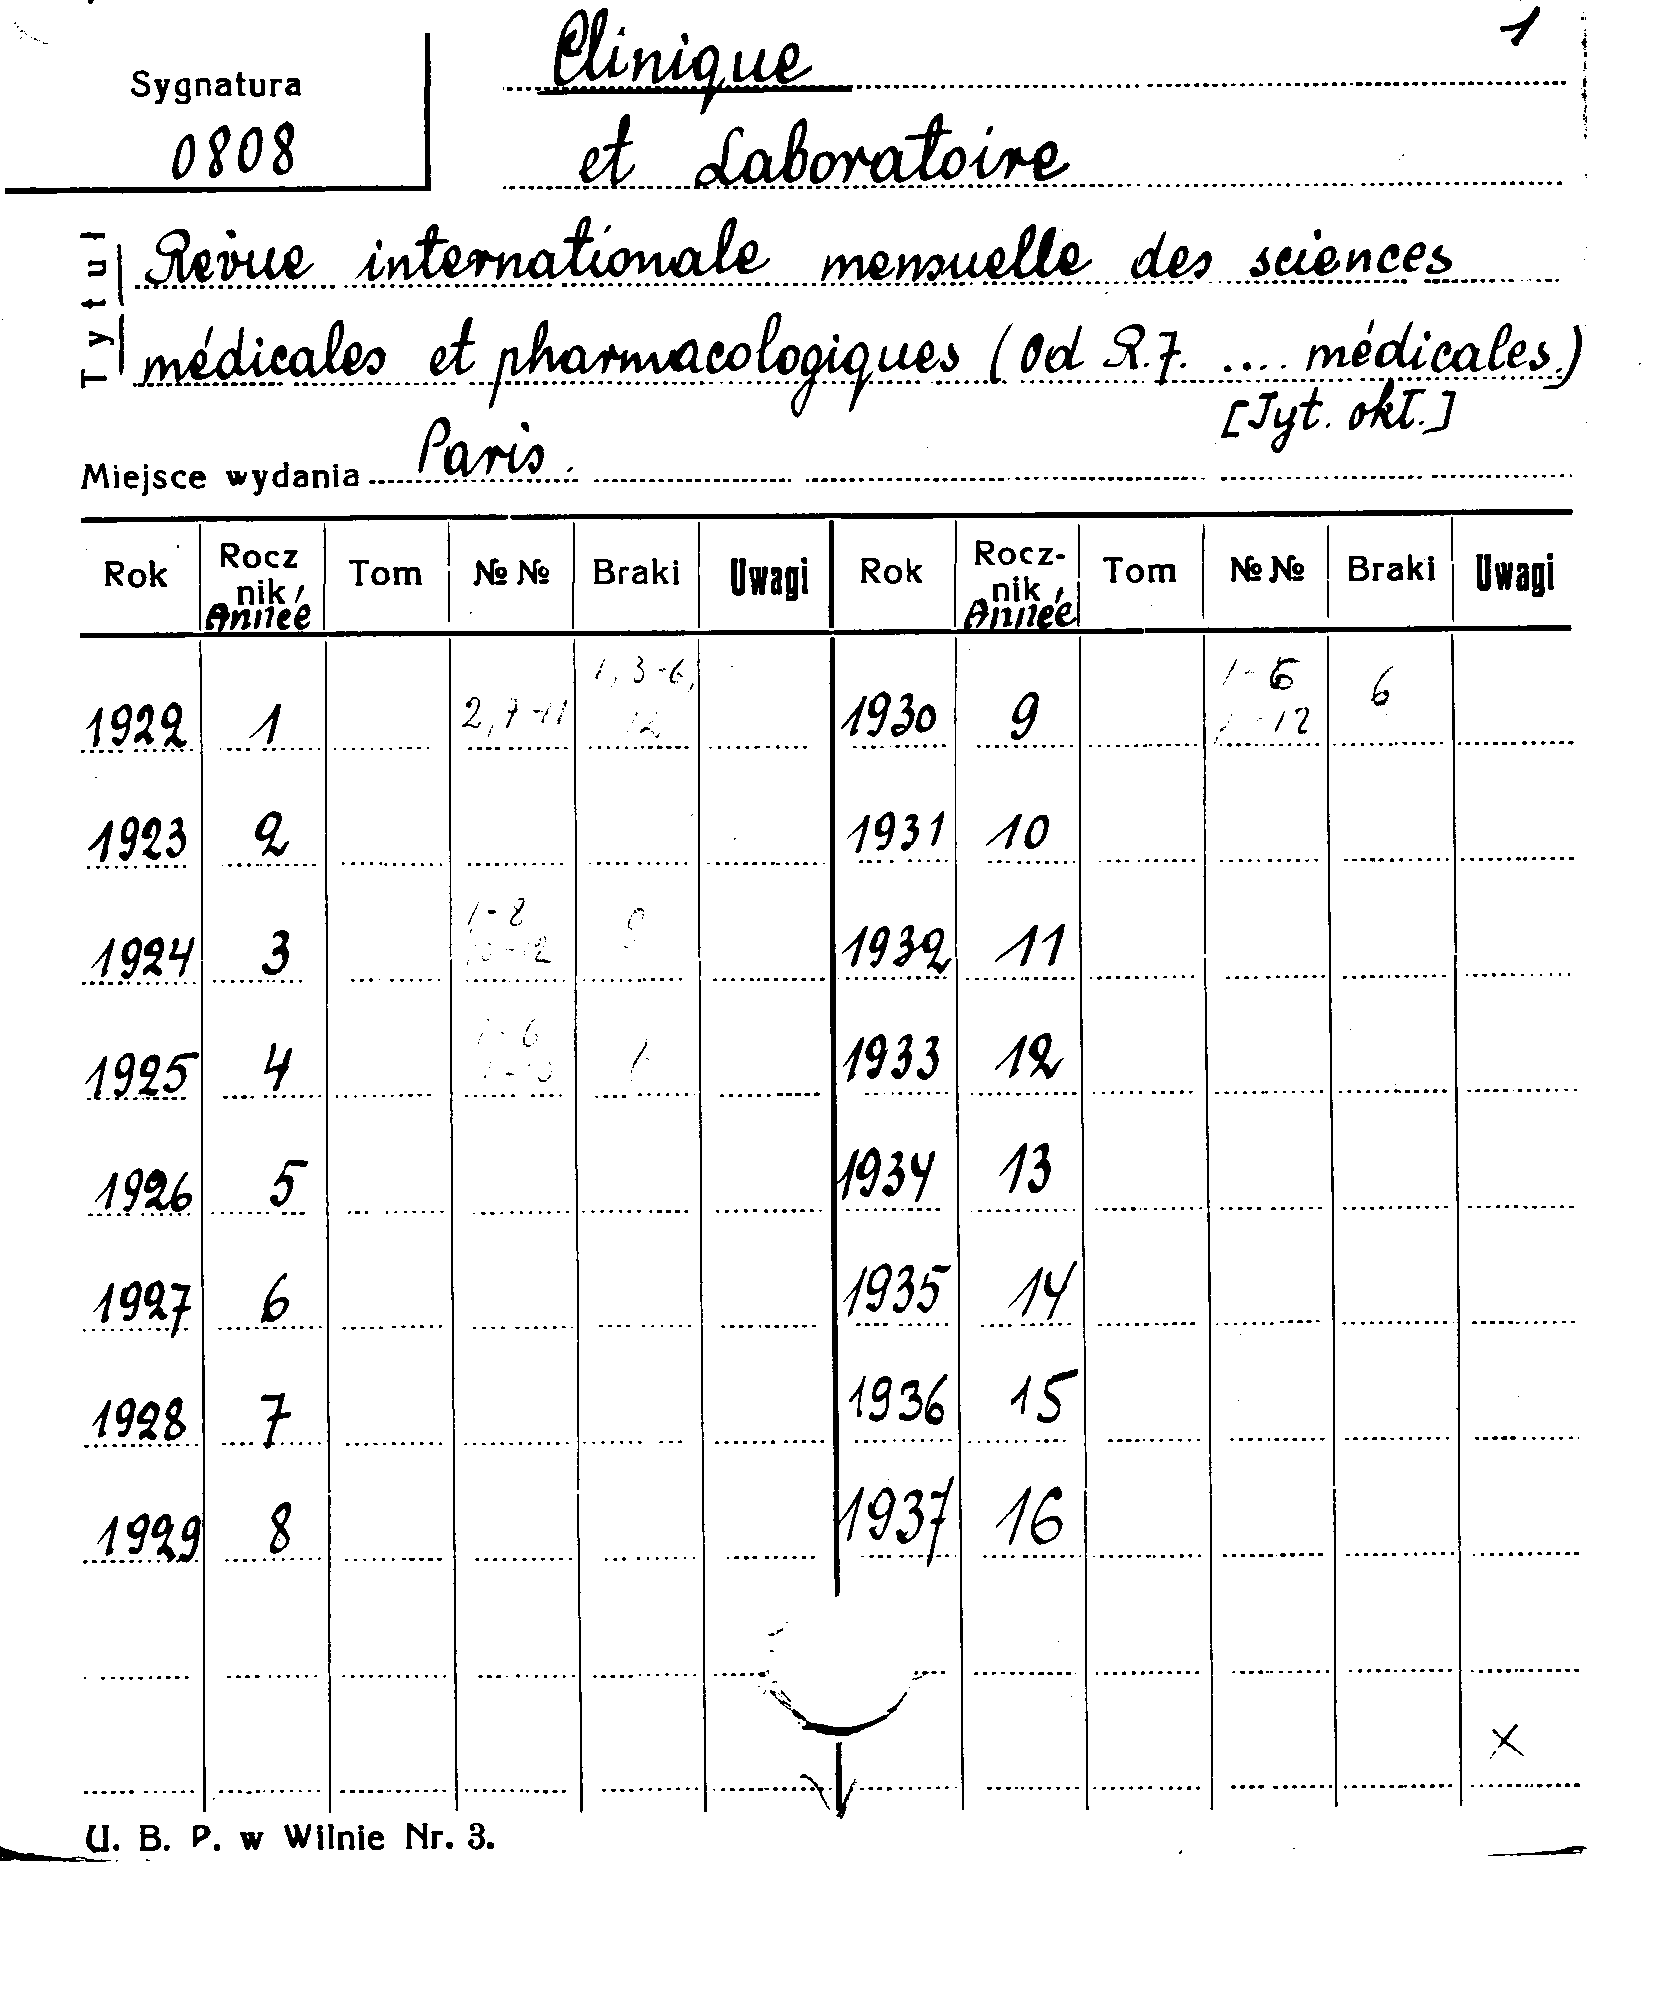 1
Clinique
Sygnatura
0808
et Laboratoire
Tytuł
Revue internationale mensuelle des sciences
médicales et pharmacologiques (Od R.7. .... médicales.)
[Tyt. okł.]
Miejsce wydania Paris.
Rok Rocznik/Année Tom №№ Braki Uwagi Rok Rocz-nik/Année Tom №№ Braki Uwagi
1922 1 2, 7-11 1, 3-6, 12 1930 9 1-6 -12 6
1923 2 1931 10
1924 3 1-8 10-12 9 1932 11
1925 4 1-6 1933 12
1926 5 1934 13
1927 6 1935 14
1928 7 1936 15
1929 8 1937 16
x
U. B. P. w Wilnie Nr. 3.